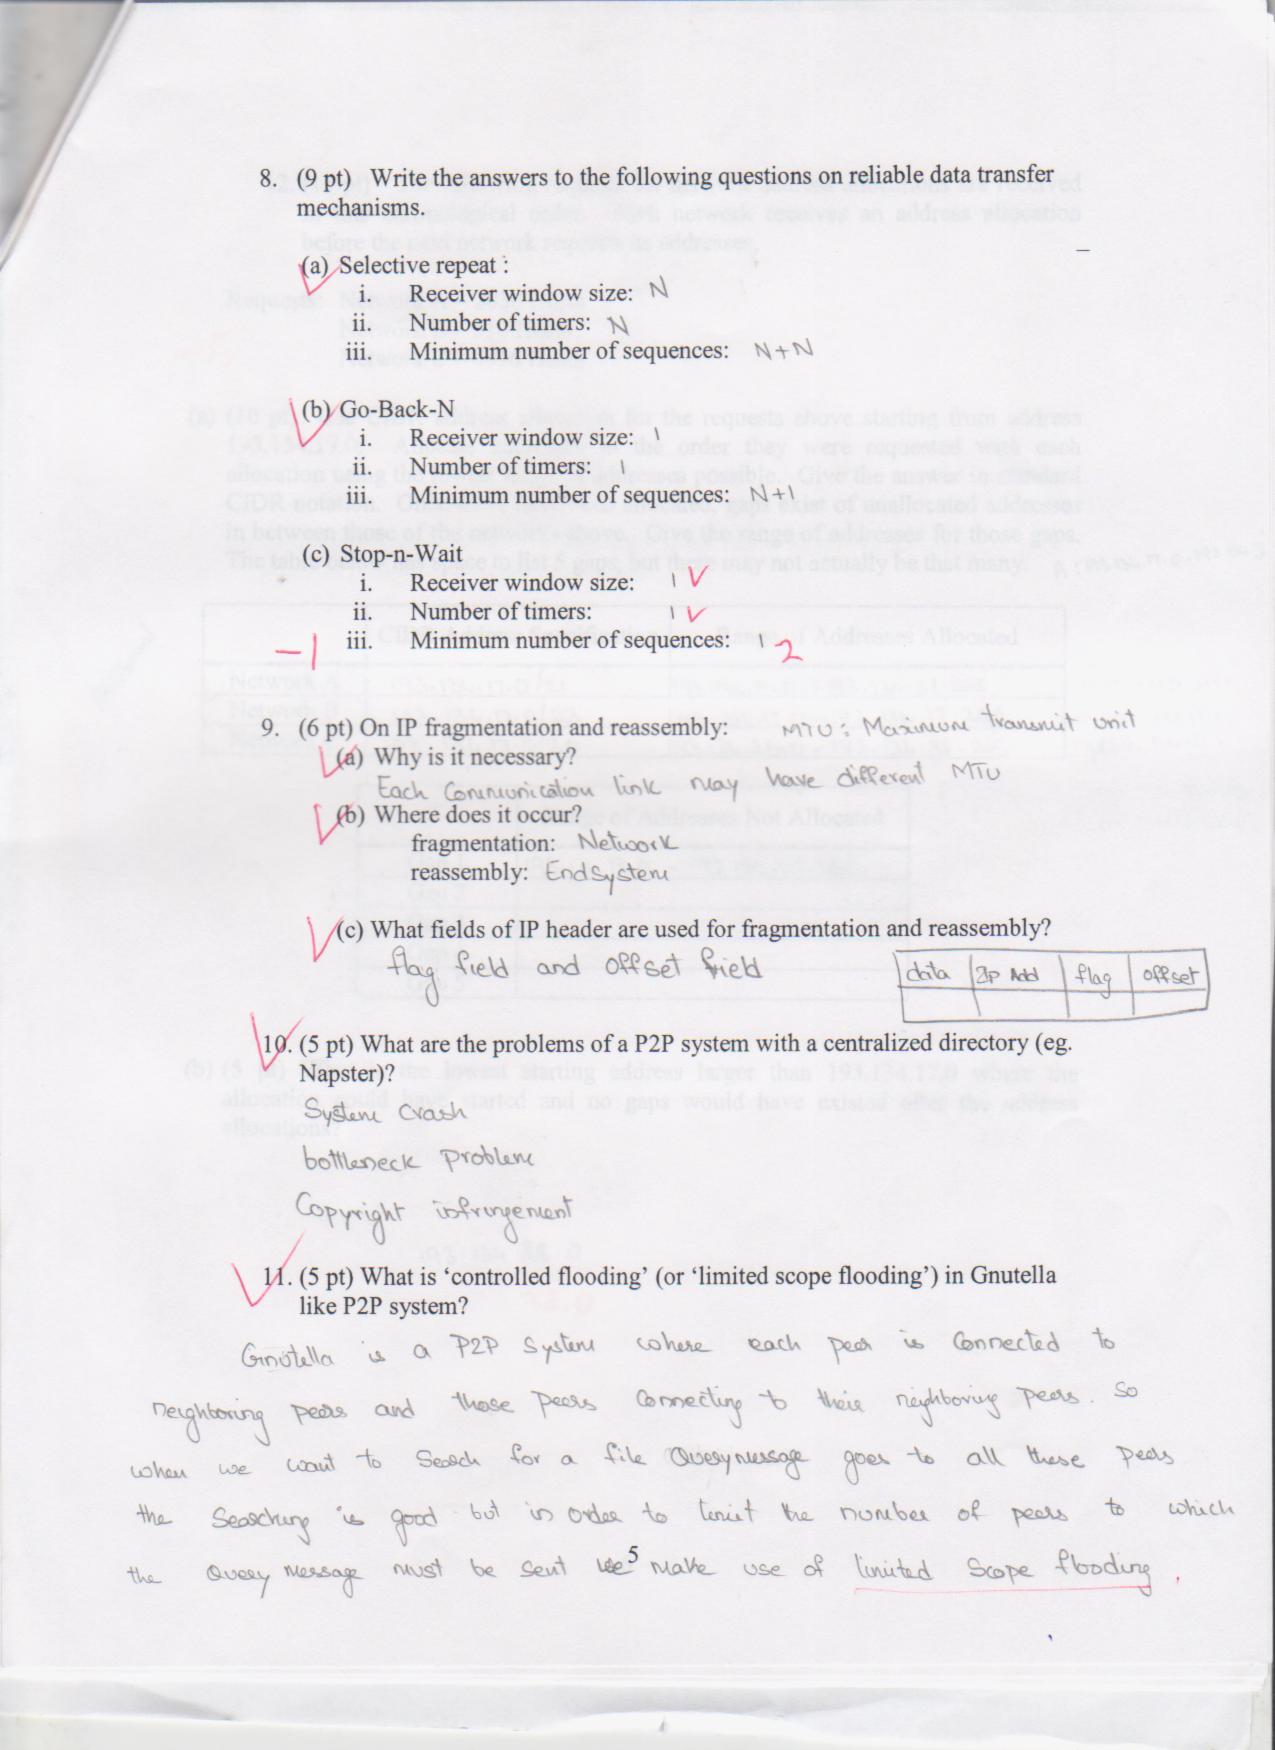 8. (9 pt) Write the answers to the following questions on reliable data transfer
mechanisms.
(a) Selective repeat :
i. Receiver window size: N
ii. Number of timers: N
iii. Minimum number of sequences: N+N
(b) Go-Back-N
i. Receiver window size: 1
ii. Number of timers: 1
iii. Minimum number of sequences: N+1
(c) Stop-n-Wait
i. Receiver window size: 1
ii. Number of timers: 1
-1 iii. Minimum number of sequences: 1 2
9. (6 pt) On IP fragmentation and reassembly: MTU: Maximum transmit unit
(a) Why is it necessary?
Each Communication link may have different MTU
(b) Where does it occur?
fragmentation: Network
reassembly: Endsystem
(c) What fields of IP header are used for fragmentation and reassembly?
flag field and offset field
data IP Add flag offset
10. (5 pt) What are the problems of a P2P system with a centralized directory (eg.
Napster)?
System Crash
bottleneck problem
Copyright infringement
11. (5 pt) What is ‘controlled flooding’ (or ‘limited scope flooding’) in Gnutella
like P2P system?
Gnutella is a P2P System where each peer is Connected to
neighboring peers and those peers connecting to their neighboring peers. So
when we want to Search for a file Query message goes to all these peers
the Searching is good but in order to limit the number of peers to which
the Query message must be sent we make use of limited Scope flooding.
5